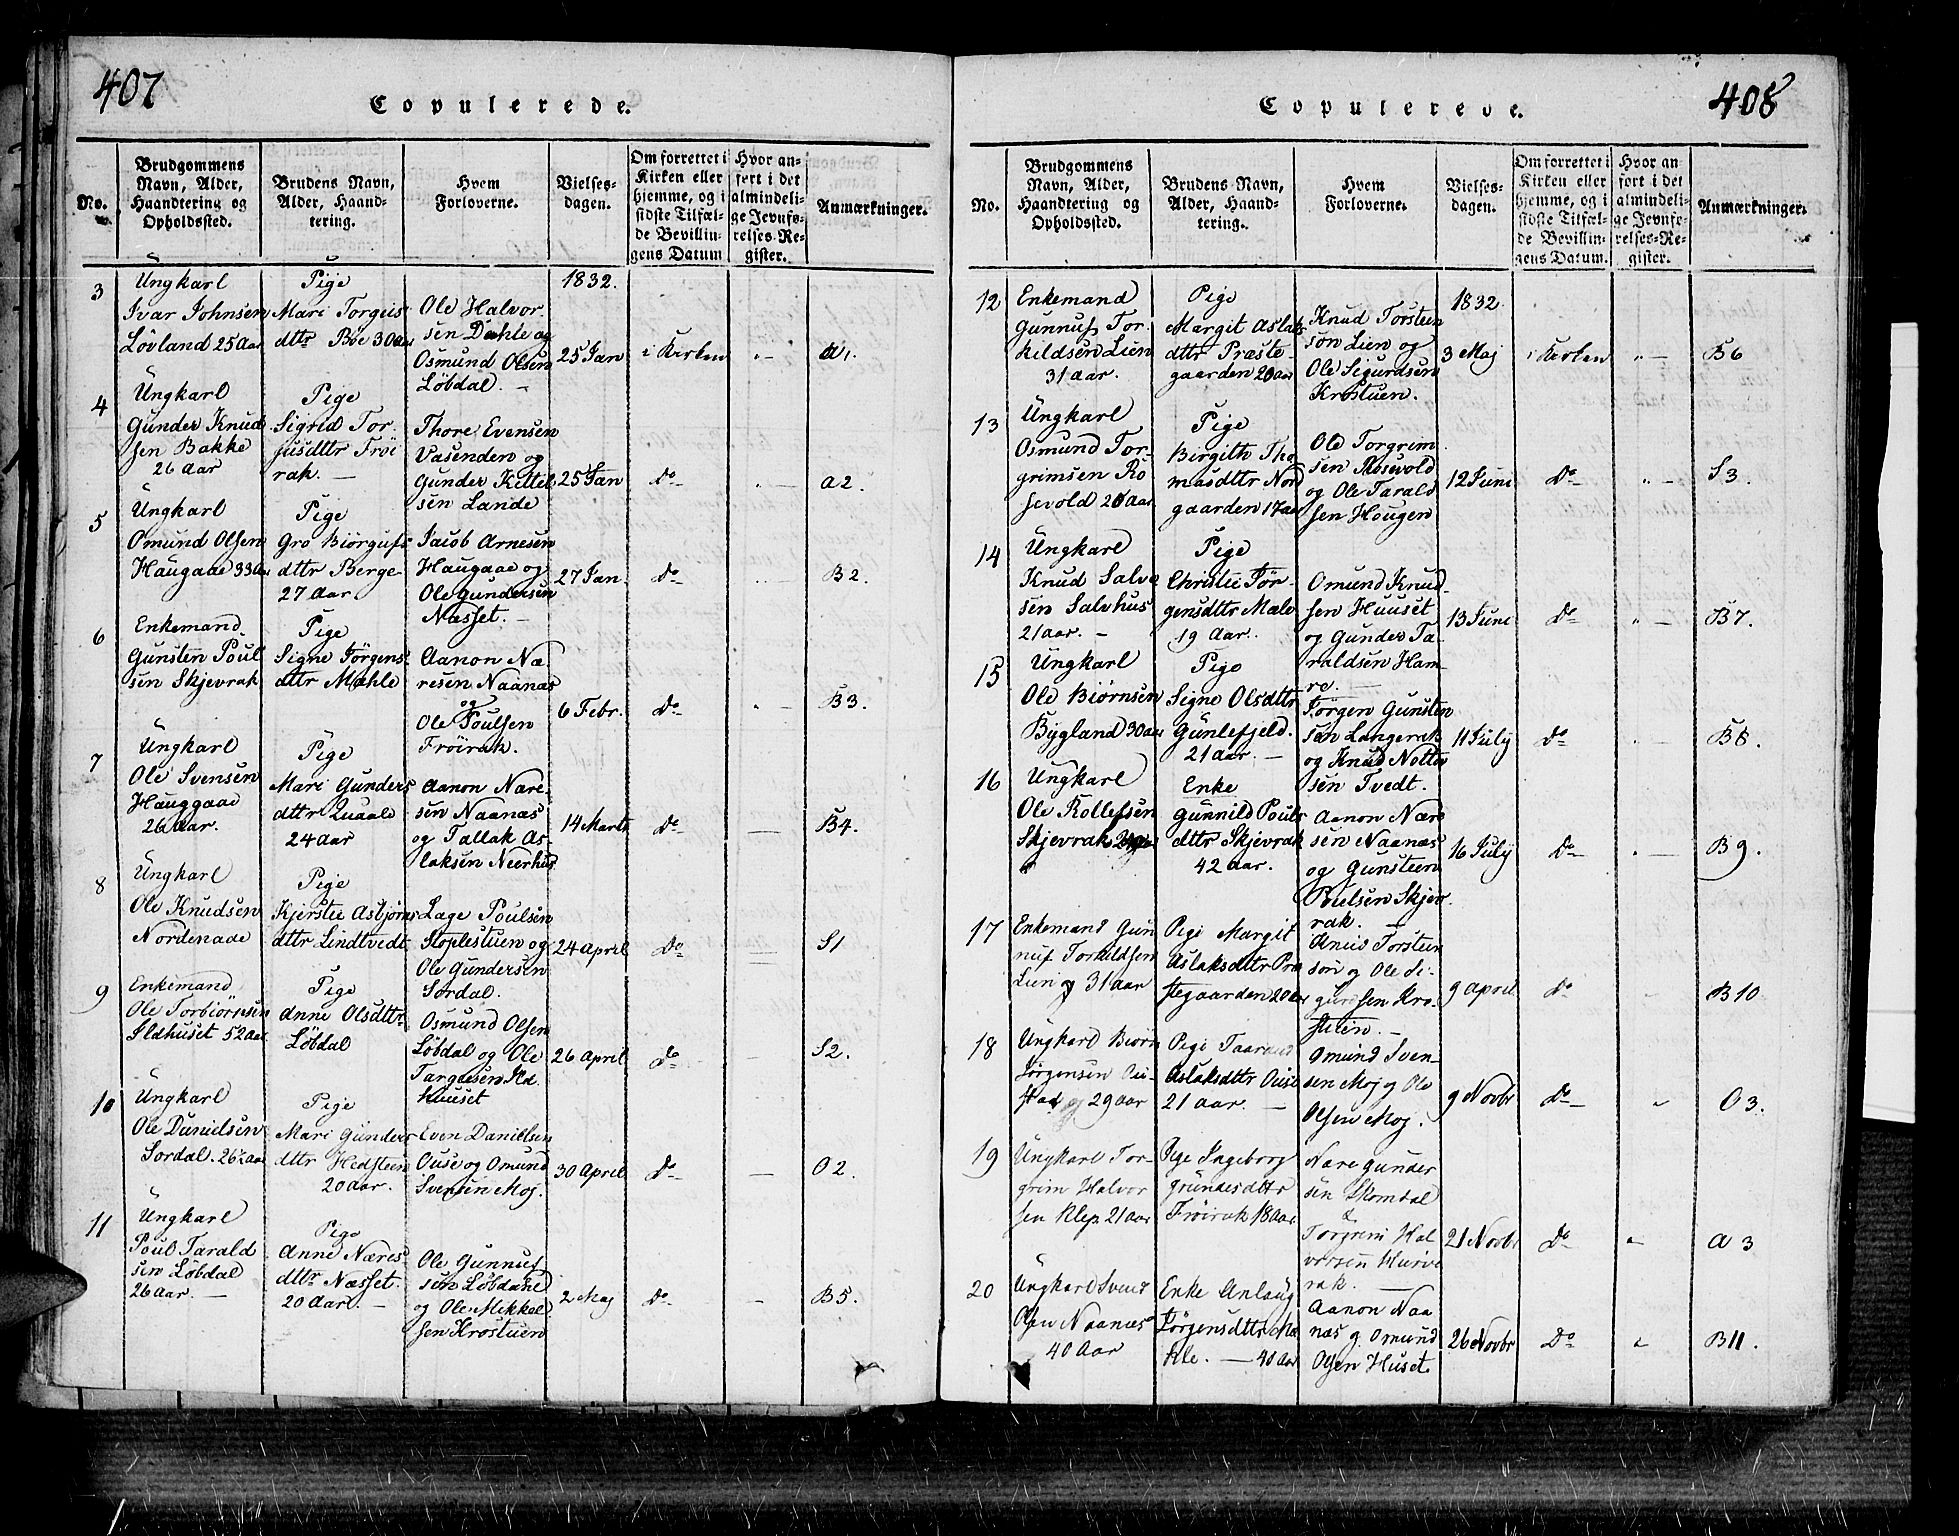 407
Copulerede.
No.
Brudgommens
Navn, Alder,
Haandtering og
Opholdssted.
Brudens Navn,
Alder, Haand-
tering.
Hvem
Forloverne.
Vielses-
dagen.
Om forrettet i
Kirken eller
hjemme, og i
sidste Tilfæl-
de Bevillin-
gens Datum
Hvor an-
ført i det
almindeli-
ge Jevnfø-
relses-Re-
gister.
Anmærkninger.
3
Ungkarl
Ivar Johnsen
Løvland 25 Aar
Pige
Mari Torgeis
dttr Bøe 30 Aar
Ole Halvor
sen Dahle og
Osmund Olsen
Løbdal. —
1832.
25 Jan
i Kirken
" —
A1.
4
Ungkarl
Gunder Knud
sen Bakke
26 Aar
Pige
Sigrid Tor-
jusdttr Frøi
rak. —
Thore Evensen
Vasenden og
Gunder Kittel
sen Lande
25 Jan
Do
" —
A2.
5
Ungkarl
Omund Olsen
Haugaae 33 Aar
Pige
Gro Biørgufs
dttr Berge-
27 Aar
Jacob Arnesen
Haugaae og
Ole Gundersen
Næsset. —
27 Jan
Do
B2.
6
Enkemand
Gunsten Poul
sen Skjevrak
Pige
Signe Jørgens
dttr Mæhle
Aanon Næ-
resen Naanæs
og
Ole Poulsen
Frøirak.
6 Febr.
Do
" —
B3.
7
Ungkarl
Ole Svensen
Hauggaae
26 Aar.
Pige
Mari Gunders
dttr Quaale
24 Aar
Aanon Nære-
sen Naanæs
og Tallak As-
laksen Neerhus
14 Marts
Do
—
B4.
8
Ungkarl
Ole Knudsen
Nordenaae
Pige
Kjerstie Asbjørns
dttr Lindtvedt
Lage Poulsen
Stoplestuen og
Ole Gundersen
Sordal.
24 April
Do
—
S1
9
Enkemand
Ole Torbiørnsen
Ildhuset 52 Aar
Pige
Anne Olsdttr
Løbdal
Osmund Olsen
Løbdal og Ole
Targusen Ild
huuset
26 April
Do
—
S2.
10
Ungkarl
Ole Danielsen
Sordal. 26½ Aar
Pige
Mari Gunders
dttr Hedsteen
20 Aar.
Even Danielsen
Ouse og Omund
Svensen Moj.
30 April
Do
—
O2.
11
Ungkarl
Poul Tarald
sen Løbdal
26 Aar. —
Pige
Anne Næres
dttr Næsset.
20 Aar. —
Ole Gunnuf
sen Løbdahl
og Ole Mikkel
sen Krostuen
2 Maj
Do
—
B5.
408
Copulerede.
No.
Brudgommens
Navn, Alder,
Haandtering og
Opholdssted.
Brudens Navn,
Alder, Haand-
tering.
Hvem
Forloverne.
Vielses-
dagen.
Om forrettet i
Kirken eller
hjemme, og i
sidste Tilfæl-
de Bevillin-
gens Datum.
Hvor an
ført i det
almindeli-
ge Jevnfø-
relses-Re-
gister.
Anmærkninger.
12
Enkemand
Gunnuf Tor-
kildsen Lien
31 aar.
Pige
Margit Aslaks
dttr Præste-
gaarden 20 aar
Knud Torsteen
søn Lien og
Ole Sigurdsen
Krostuen.
1832
3 Maj
i Kirken
" —
B6
13
Ungkarl
Osmund Tor-
grimsen Ro
sevold 20 Aar
Pige
Birgith Tho
masdttr Nor
gaarden 17 aar
Ole Torgrim
sen Rosevold
og Ole Tarald
sen Hougen
12 Juni
Do
" —
S3.
14
Ungkarl
Knud Salve
sen Salvhus
21 aar. —
Pige
Christie Jør-
gensdttr Mæle
19 Aar.
Omund Knud-
sen Huuset
og Gunder Ta-
raldsen Ham-
re. —
13 Juni
Do
" —
B7.
15
Ungkarl
Ole Biørnsen
Bygland 30 aar
Pige
Signe Olsdttr
Gunlefjeld.
21 aar. —
Jørgen Gunsten
sen Langerak
og Knud Notto
sen Tvedt.
11 July
Do
B8.
16
Ungkarl
Ole Rollefsen
Skjevrak
Enke
Gunnild Pouls
dttr Skjevrak
42 aar.
Aanon Nære
sen Naanæs
og Gunsteen
Poulsen Skjev
rak. —
16 July
Do
" —
B9.
17
Enkemand Gun
nuf Torkildsen
Lien 31 aar
Pige Margit
Aslaksdttr Præ
stegaarden 20 aar
Knud Torsteen
søn og Ole Si-
gurdsen Kro-
stuen. —
9 April
Do
"
B10
18
Ungkarl Biørn
Jørgensen Ou-
stad 29 aar
Pige
Aslaksdttr Oust
21 aar. —
Omund Sven-
sen Moj og Ole
Olsen Moj.
9 Novbr
Do
"
O3.
19
Ungkarl Tor-
grim Halvor
sen Klep 21 aar
Pige Ingeborg
Grundesdttr
Frøirak 18 aar
Nære Gunder
sen Skomdal
&
Torgrim Hal
vorsen Hurve
rak. —
21 Novbr
Do
"
A3
20
Ungkarl Svend
Olsen Naanæs
40 Aar
Enke Anlaug
Jørgensdttr Mæ
hle. — 40 Aar
Aanon Naa
næs og Omund
Olsen Huset.
26 Novbr
Do
"
B11.